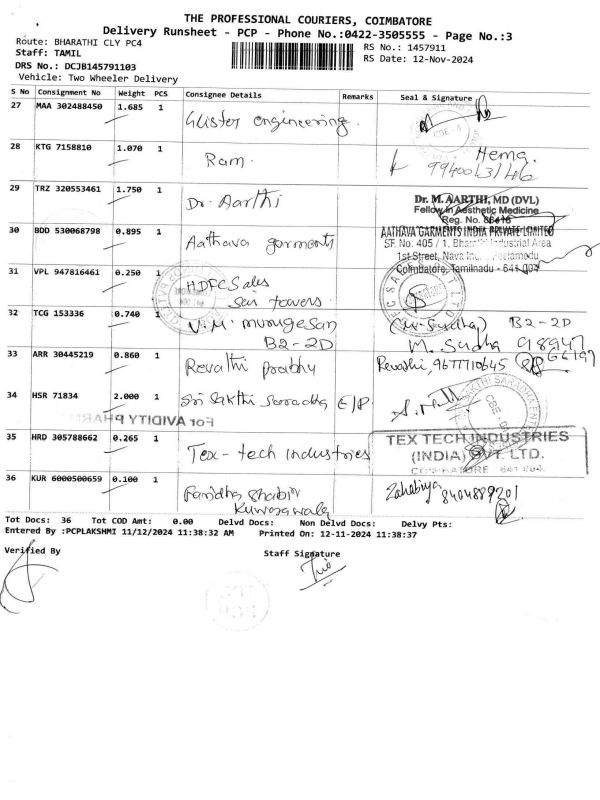 THE PROFESSIONAL COURIERS, COIMBATORE
Delivery Runsheet - PCP - Phone No.:0422-3505555 - Page No.:3
Route: BHARATHI CLY PC4
RS No.: 1457911
Staff: TAMIL
RS Date: 12-Nov-2024
DRS No.: DCJB145791103
Vehicle: Two Wheeler Delivery
S No Consignment No Weight PCS Consignee Details Remarks Seal & Signature
27 MAA 302488450 1.685 1 Glister engineering.
28 KTG 7158810 1.070 1 Ram. Hema
29 TRZ 320553461 1.750 1 Dr. Aarthi
Dr. M. AARTHI, MD (DVL)
Fellow in Aesthetic Medicine
Reg. No. 86416
30 BDD 530068798 0.895 1 Aathava garments
AATHAVA GARMENTS INDIA PRIVATE LIMITED
SF. No. 405 / 1, Industrial Area
1st Street, Nava
Coimbatore, Tamilnadu - 641 004
31 VPL 947816461 0.250 1 HDFC Sales
Sen towers
32 TCG 153336 0.740 1 V.M. murugesan B2-2D
B2-2D M. Sudha 98947
33 ARR 30445219 0.860 1 Revathi prabhu Revathi, 9677710645
34 HSR 71834 2.000 1 Sri Sakthi Saradha E/P
For AVIDITY PHAR
35 HRD 305788662 0.265 1 Tex-tech industries
TEX TECH INDUSTRIES
(INDIA) PVT. LTD.
COIMBATORE 641 004.
36 KUR 6000500659 0.100 1 Faridha Shabir Zahabiya 8404889201
Tot Docs: 36 Tot COD Amt: 0.00 Delvd Docs: Non Delvd Docs: Delvy Pts:
Entered By :PCPLAKSHMI 11/12/2024 11:38:32 AM Printed On: 12-11-2024 11:38:37
Verified By Staff Signature